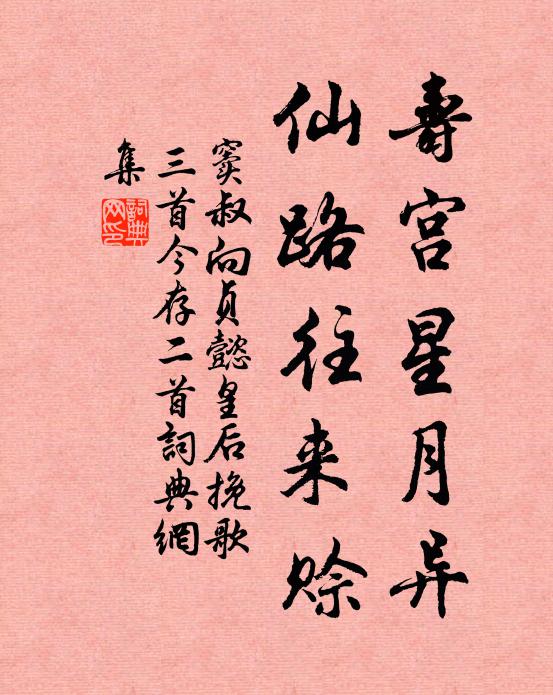 壽宫星月异
仙路往来赊
窦叔向贞懿皇后挽歌
三首今存二首詞典網
集
詞典
网印